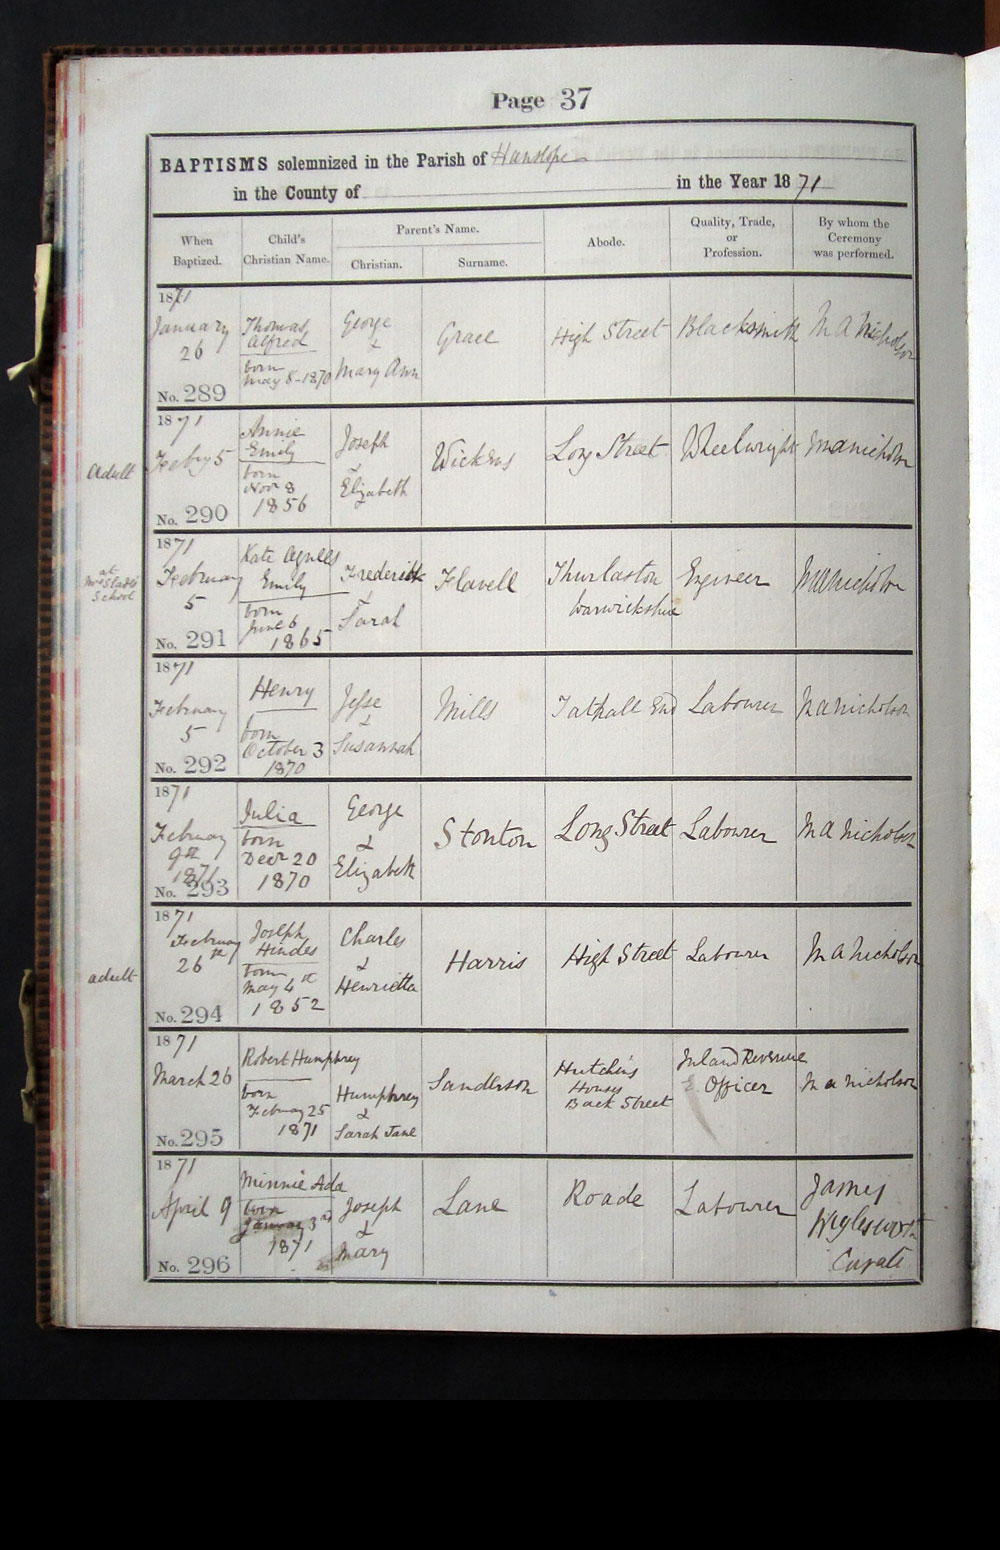 Page 37
BAPTISMS solemnized in the Parish of Hanslope
in the County of in the Year 1871
When Baptized.
Child's Christian Name.
Parent's Name.
Christian.
Surname.
Abode.
Quality, Trade, or Profession.
By whom the Ceremony was performed.
1871
January 26
No. 289
Thomas Alfred
born
May 8-1870
George
&
Mary Ann
Grace
High Street
Blacksmith
M A Nicholson
adult
1871
Febry 5
No. 290
Annie
Emily
born
Novr 8
1856
Joseph
&
Elizabeth
Wickens
Long Street
Wheelwright
M A Nicholson
at
School
1871
February
5
No. 291
Kate Agnes
Emily
born
June 6
1865
Frederick
&
Sarah
Flavell
Thurlaston
Warwickshire
Engineer
M A Nicholson
1871
February
5
No. 292
Henry
born
October 3
1870
Jesse
&
Susannah
Mills
Tathall End
Labourer
M A Nicholson
1871
February
9th
1871
No. 293
Julia
born
Decr 20
1870
George
&
Elizabeth
Stonton
Long Street
Labourer
M A Nicholson
adult
1871
February
26th
No. 294
Joseph
Hindes
born
May 4th
1852
Charles
&
Henrietta
Harris
High Street
Labourer
M A Nicholson
1871
March 26
No. 295
Robert Humphrey
born
Februay 25
1871
Humphrey
&
Sarah Jane
Sanderson
Hutchins
Houses
Back Street
Inland Revenue
Officer
M A Nicholson
1871
April 9
No. 296
Minnie Ada
born
January 3rd
1871
Joseph
&
Mary
Lane
Roade
Labourer
James
Wiglesworth
Curate